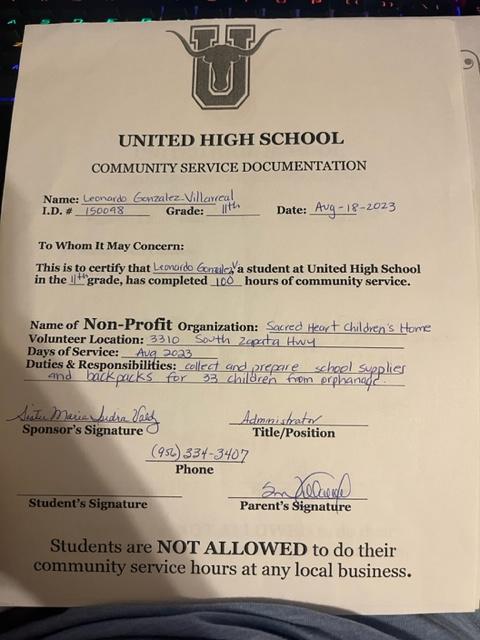 U
UNITED HIGH SCHOOL
COMMUNITY SERVICE DOCUMENTATION
Name: Leonardo Gonzalez Villarreal
I.D. # 150098 Grade: 11th Date: Aug-18-2023
To Whom It May Concern:
This is to certify that Leonardo Gonzalez V a student at United High School
in the 11th grade, has completed 100 hours of community service.
Name of Non-Profit Organization: Sacred Heart Children's Home
Volunteer Location: 3310 South Zapata Hwy
Days of Service: Aug 2023
Duties & Responsibilities: collect and prepare school supplier
and backpacks for 33 children from orphanage.
Sister Maria Administrator
Sponsor's Signature Title/Position
(956) 334-3407
Phone
Student's Signature Parent's Signature
Students are NOT ALLOWED to do their
community service hours at any local business.